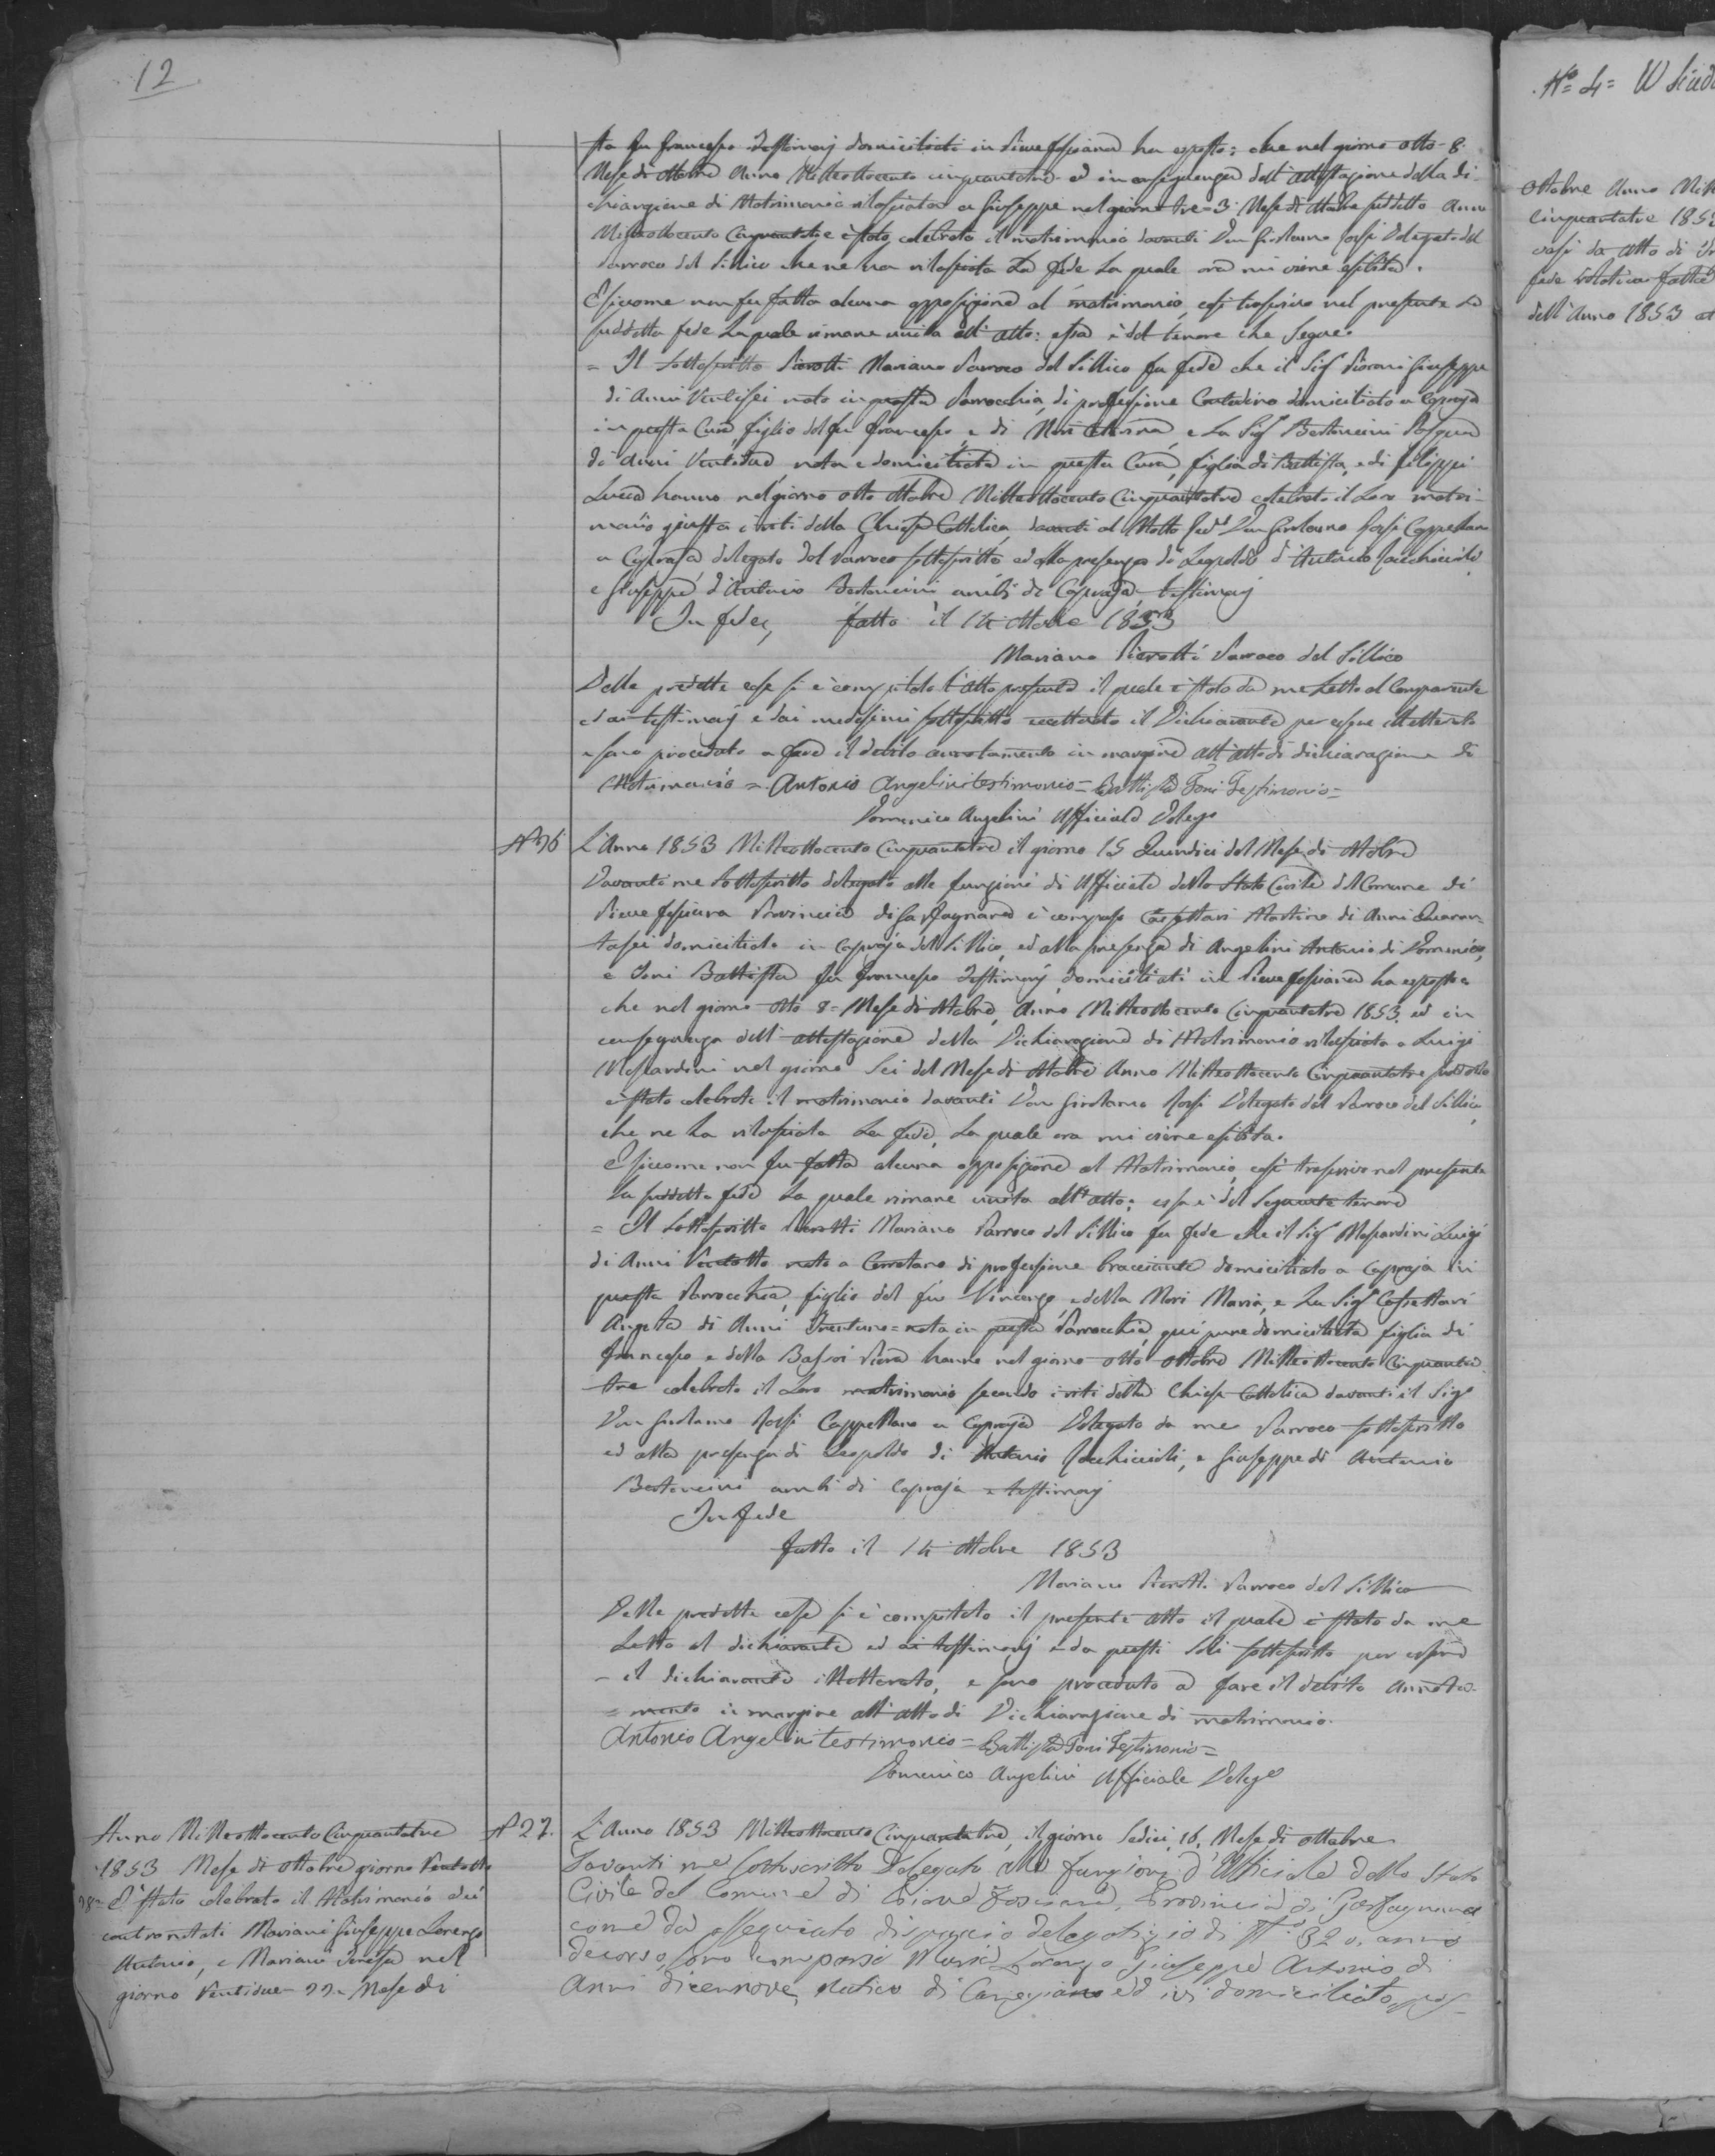 12
sta fu Francesco testimonj domiciliati in Pieve fosciana ha esposto: che nel giorno otto 8
Mese di Ottobre Anno Milleottocento cinquantatre ed in conseguenza dell'attestazione della di
chiarazione di Matrimonio rilasciata a Giuseppe nel giorno tre = 3 Mese di Ottobre suddetto Anno
Milleottocento Cinquantatre è stato celebrato il matrimonio davanti Don Girolamo Rossi Delegato del
Parroco del Sillico che ne ha rilasciata La fede La quale ora mi viene esibita.
E siccome non fu fatta alcuna opposizione al matrimonio, così trascrivo nel presente La
suddetta fede La quale rimane unita all'atto: essa è del tenore che segue.
= Il Sottoscritto Pierotti Mariano Parroco del Sillico fa fede che il Sig. Giuseppe
di Anni Ventisei nato in questa Parrocchia, di professione Contadino domiciliato a Capraja
in questa Cura, figlio del fu Francesco, e di Mori Caterina, e La Sig. Bertoncini Pasqua
di Anni Ventidue nata e domiciliata in questa Cura, figlia di Battista, e di Filippi
Lucia hanno nel giorno otto Ottobre Milleottocento Cinquantatre celebrato il Loro matri-
monio giusta i riti della Chiesa Cattolica, davanti al Molto Rev.d Don Girolamo Rossi Cappellano
a Capraja delegato dal Parroco sottoscritto ed alla presenza di Leopoldo d'Antonio
e Giuseppe d'Antonio Bertoncini ambi di Capraja testimonj
In fede, fatto il 14 Ottobre 1853
Mariano Pierotti Parroco del Sillico
Delle predette cose si è compilato l'atto presente il quale è stato da me Letto al Comparente
ed ai testimonj e dai medesimi sottoscritto eccettuato il Dichiarante per essere illetterato
e sono proceduto a fare il debito annotamento in margine all'atto di dichiarazione di
Matrimonio = Antonio Angelini testimonio = Battista Toni Testimonio =
Domenico Angelini Ufficiale Deleg.o
N° 26
L'Anno 1853 Milleottocento Cinquantatre il giorno 15 Quindici del Mese di Ottobre
Davanti me Sottoscritto delegato alle funzioni di Ufficiale dello Stato Civile del Comune di
Pieve fosciana Provincia di Garfagnana è comparso Martino di Anni Quaran-
tasei domiciliato in Capraja del Sillico, ed alla presenza di Angelini Antonio di Domenico,
e Toni Battista fu Francesco Testimonj domiciliati in Pieve fosciana ha esposto
che nel giorno otto 8 = Mese di Ottobre, Anno Milleottocento Cinquantatre 1853. ed in
conseguenza dell'attestazione della Dichiarazione di Matrimonio rilasciata a Luigi
nel giorno Sei del Mese di Ottobre Anno Milleottocento Cinquantatre suddetto
è stato celebrato il matrimonio davanti Don Girolamo Rossi Delegato dal Parroco del Sillico
che ne ha rilasciata La fede, La quale ora mi viene esibita.
E siccome non fu fatta alcuna opposizione al Matrimonio, così trascrivo nel presente
La suddetta fede La quale rimane unita all'atto; essa è del seguente tenore
= Il Sottoscritto Pierotti Mariano Parroco del Sillico fa fede che il Sig. Luigi
di Anni nato a Cerretano di professione bracciante domiciliato a Capraja in
questa Parrocchia, figlio del fu Vincenzo, e della Mori Maria, e La Sig.
Angela di Anni Trentuno = nata in questa Parrocchia, qui pure domiciliata figlia di
Francesco e della hanno nel giorno otto Ottobre Milleottocento Cinquanta
tre celebrato il Loro matrimonio secondo i riti della Chiesa Cattolica davanti il Sig.
Don Girolamo Rossi Cappellano a Capraja Delegato da me Parroco sottoscritto
ed alla presenza di Leopoldo di Antonio e Giuseppe di Antonio
Bertoncini ambi di Capraja = testimonj
In fede
fatto il 14 Ottobre 1853
Mariano Pierotti Parroco del Sillico
Delle predette cose si è compilato il presente atto il quale è stato da me
Letto al dichiarante ed ai testimonj e da questi soli sottoscritto per essere
il dichiarante illetterato, e sono proceduto a fare il debito annota-
= mento in margine all'atto di Dichiarazione di matrimonio.
Antonio Angelini testimonio = Battista Toni Testimonio =
Domenico Angelini Ufficiale Deleg.o
N° 27.
L'Anno 1853 Milleottocento Cinquantatre, il giorno Sedici, 16. Mese di Ottobre
Davanti me sottoscritto Delegato alle funzioni d'Ufficiale dello Stato
Civile del Comune di Pieve Fosciana, Provincia di Garfagnana
come da ossequiato dispaccio delegatizio di N° 320. anno
decorso, sono comparsi Lorenzo Giuseppe Antonio di
Anni diecennove, nativo di Careggine ed ivi domiciliato,
Anno Milleottocento Cinquantatre
1853 Mese di Ottobre giorno Ventotto
28 = È stato celebrato il Matrimonio dei
contronotati Mariani Giuseppe Lorenzo
Antonio, e Mariani nel
giorno Ventidue = 22 = Mese di
N° 4 =
Ottobre Anno
Cinquantatre 185
dell'Anno 1853